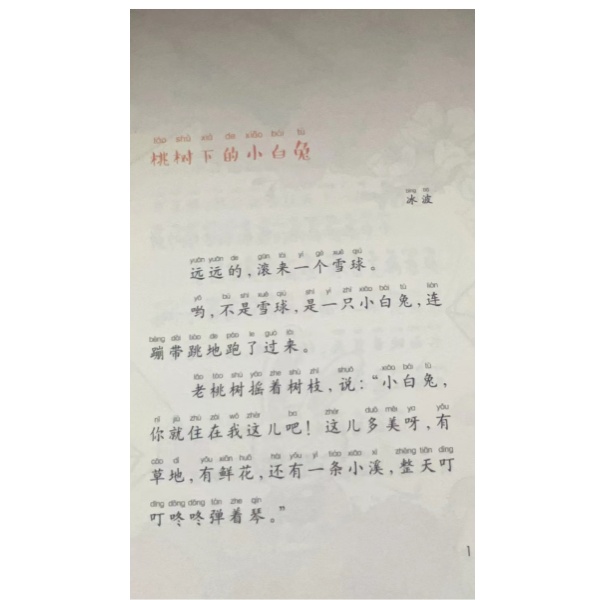 táo shù xià de xiǎo bái tù
桃树下的小白兔
bīng bō
冰波
yuǎn yuǎn de gǔn lái yí gè xuě qiú
远远的，滚来一个雪球。
yō bú shì xuě qiú shì yì zhī xiǎo bái tù lián
哟，不是雪球，是一只小白兔，连
bèng dài tiào de pǎo le guò lái
蹦带跳地跑了过来。
lǎo táo shù yáo zhe shù zhī shuō xiǎo bái tù
老桃树摇着树枝，说：“小白兔，
nǐ jiù zhù zài wǒ zhèr ba zhèr duō měi ya yǒu
你就住在我这儿吧！这儿多美呀，有
cǎo dì yǒu xiān huā hái yǒu yì tiáo xiǎo xī zhěng tiān dīng
草地，有鲜花，还有一条小溪，整天叮
dīng dōng dōng tán zhe qín
叮咚咚弹着琴。”
1